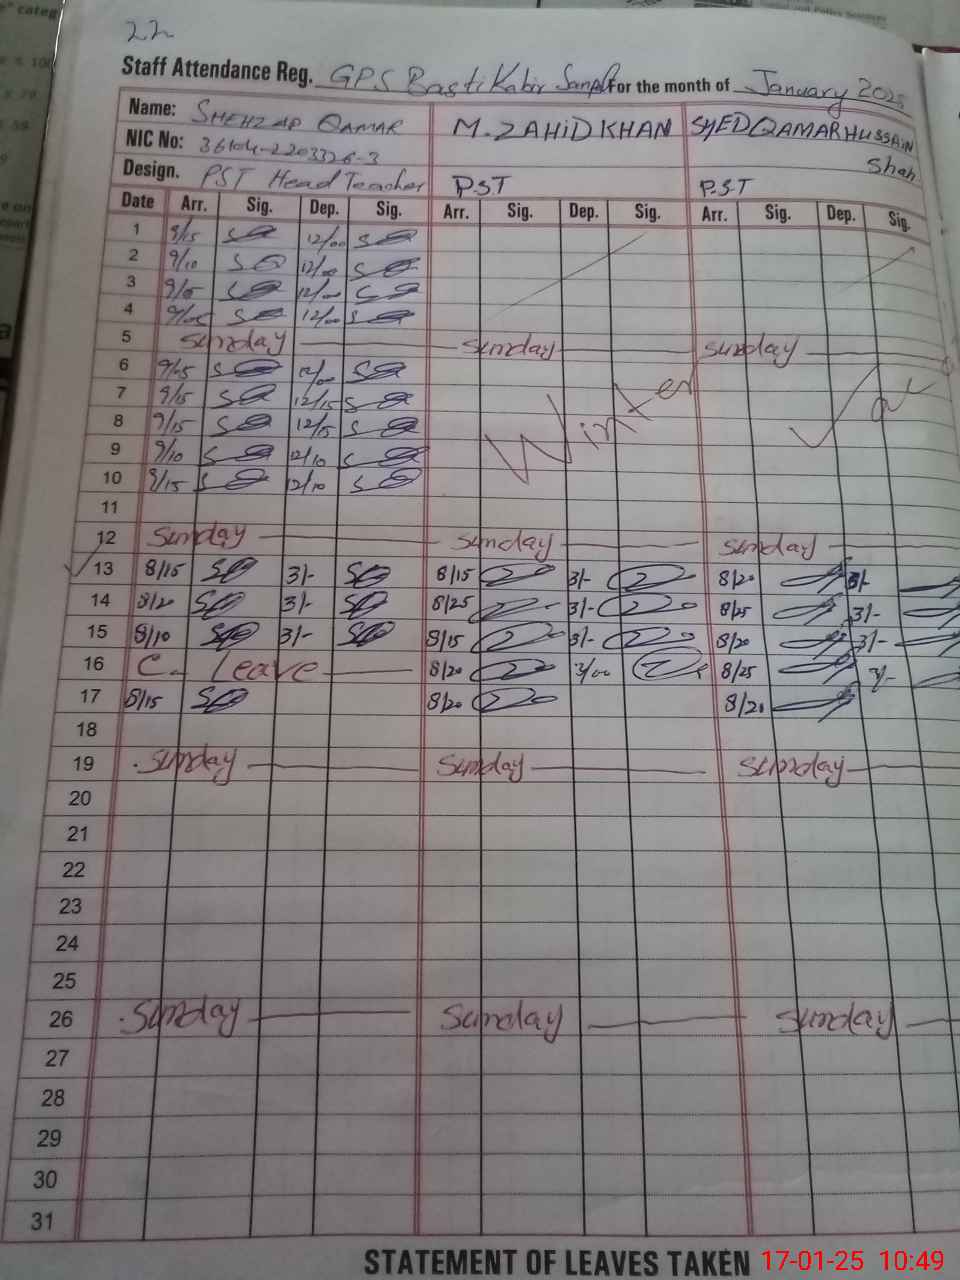 22
Staff Attendance Reg. GPS Basti Kabir Sanpal For the month of January 2025
Name: SHEHZAD QAMAR M. ZAHID KHAN SYED QAMAR HUSSAIN Shah
NIC No: 36104-2203326-3
Design. PST Head Teacher PST P.S.T
Date Arr. Sig. Dep. Sig. Arr. Sig. Dep. Sig. Arr. Sig. Dep. Sig.
1 9/15 12/00
2 9/10 12/00
3 9/15 12/00
4 9/05 12/00
5 Sunday Sunday Sunday
6 9/15 12/00
7 9/15 12/15
8 9/15 12/15
Winter
9 9/10 12/10
10 9/15 12/10
11
12 Sunday Sunday Sunday
13 8/15 3/- 8/15 3/- 8/20 3/-
14 8/20 3/- 8/25 3/- 8/25 3/-
15 8/10 3/- 8/15 3/- 8/20 3/-
16 C. Leave 8/20 3/00 8/25 3/-
17 8/15 8/20 8/20
18
19 Sunday Sunday Sunday
20
21
22
23
24
25
26 Sunday Sunday Sunday
27
28
29
30
31
STATEMENT OF LEAVES TAKEN
17-01-25 10:49